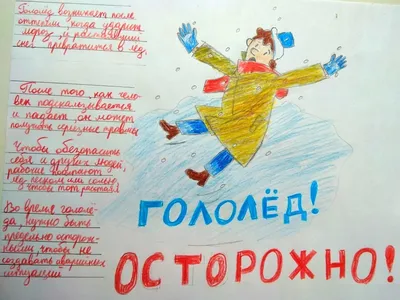 Гололёд возникает после
оттепели, когда ударит
мороз, и растаявший
снег превратится в лёд.
После того, как чело-
век подскальзывается
и падает, он может
получить серьёзные травмы
Чтобы обезопасить
себя и других людей,
рабочие посыпают
лёд песком или солью,
чтобы тот растаял
Во время гололё-
да, нужно быть
предельно осторож-
ным, чтобы не
создавать аварийных
ситуаций
ГОЛОЛЁД!
ОСТОРОЖНО!